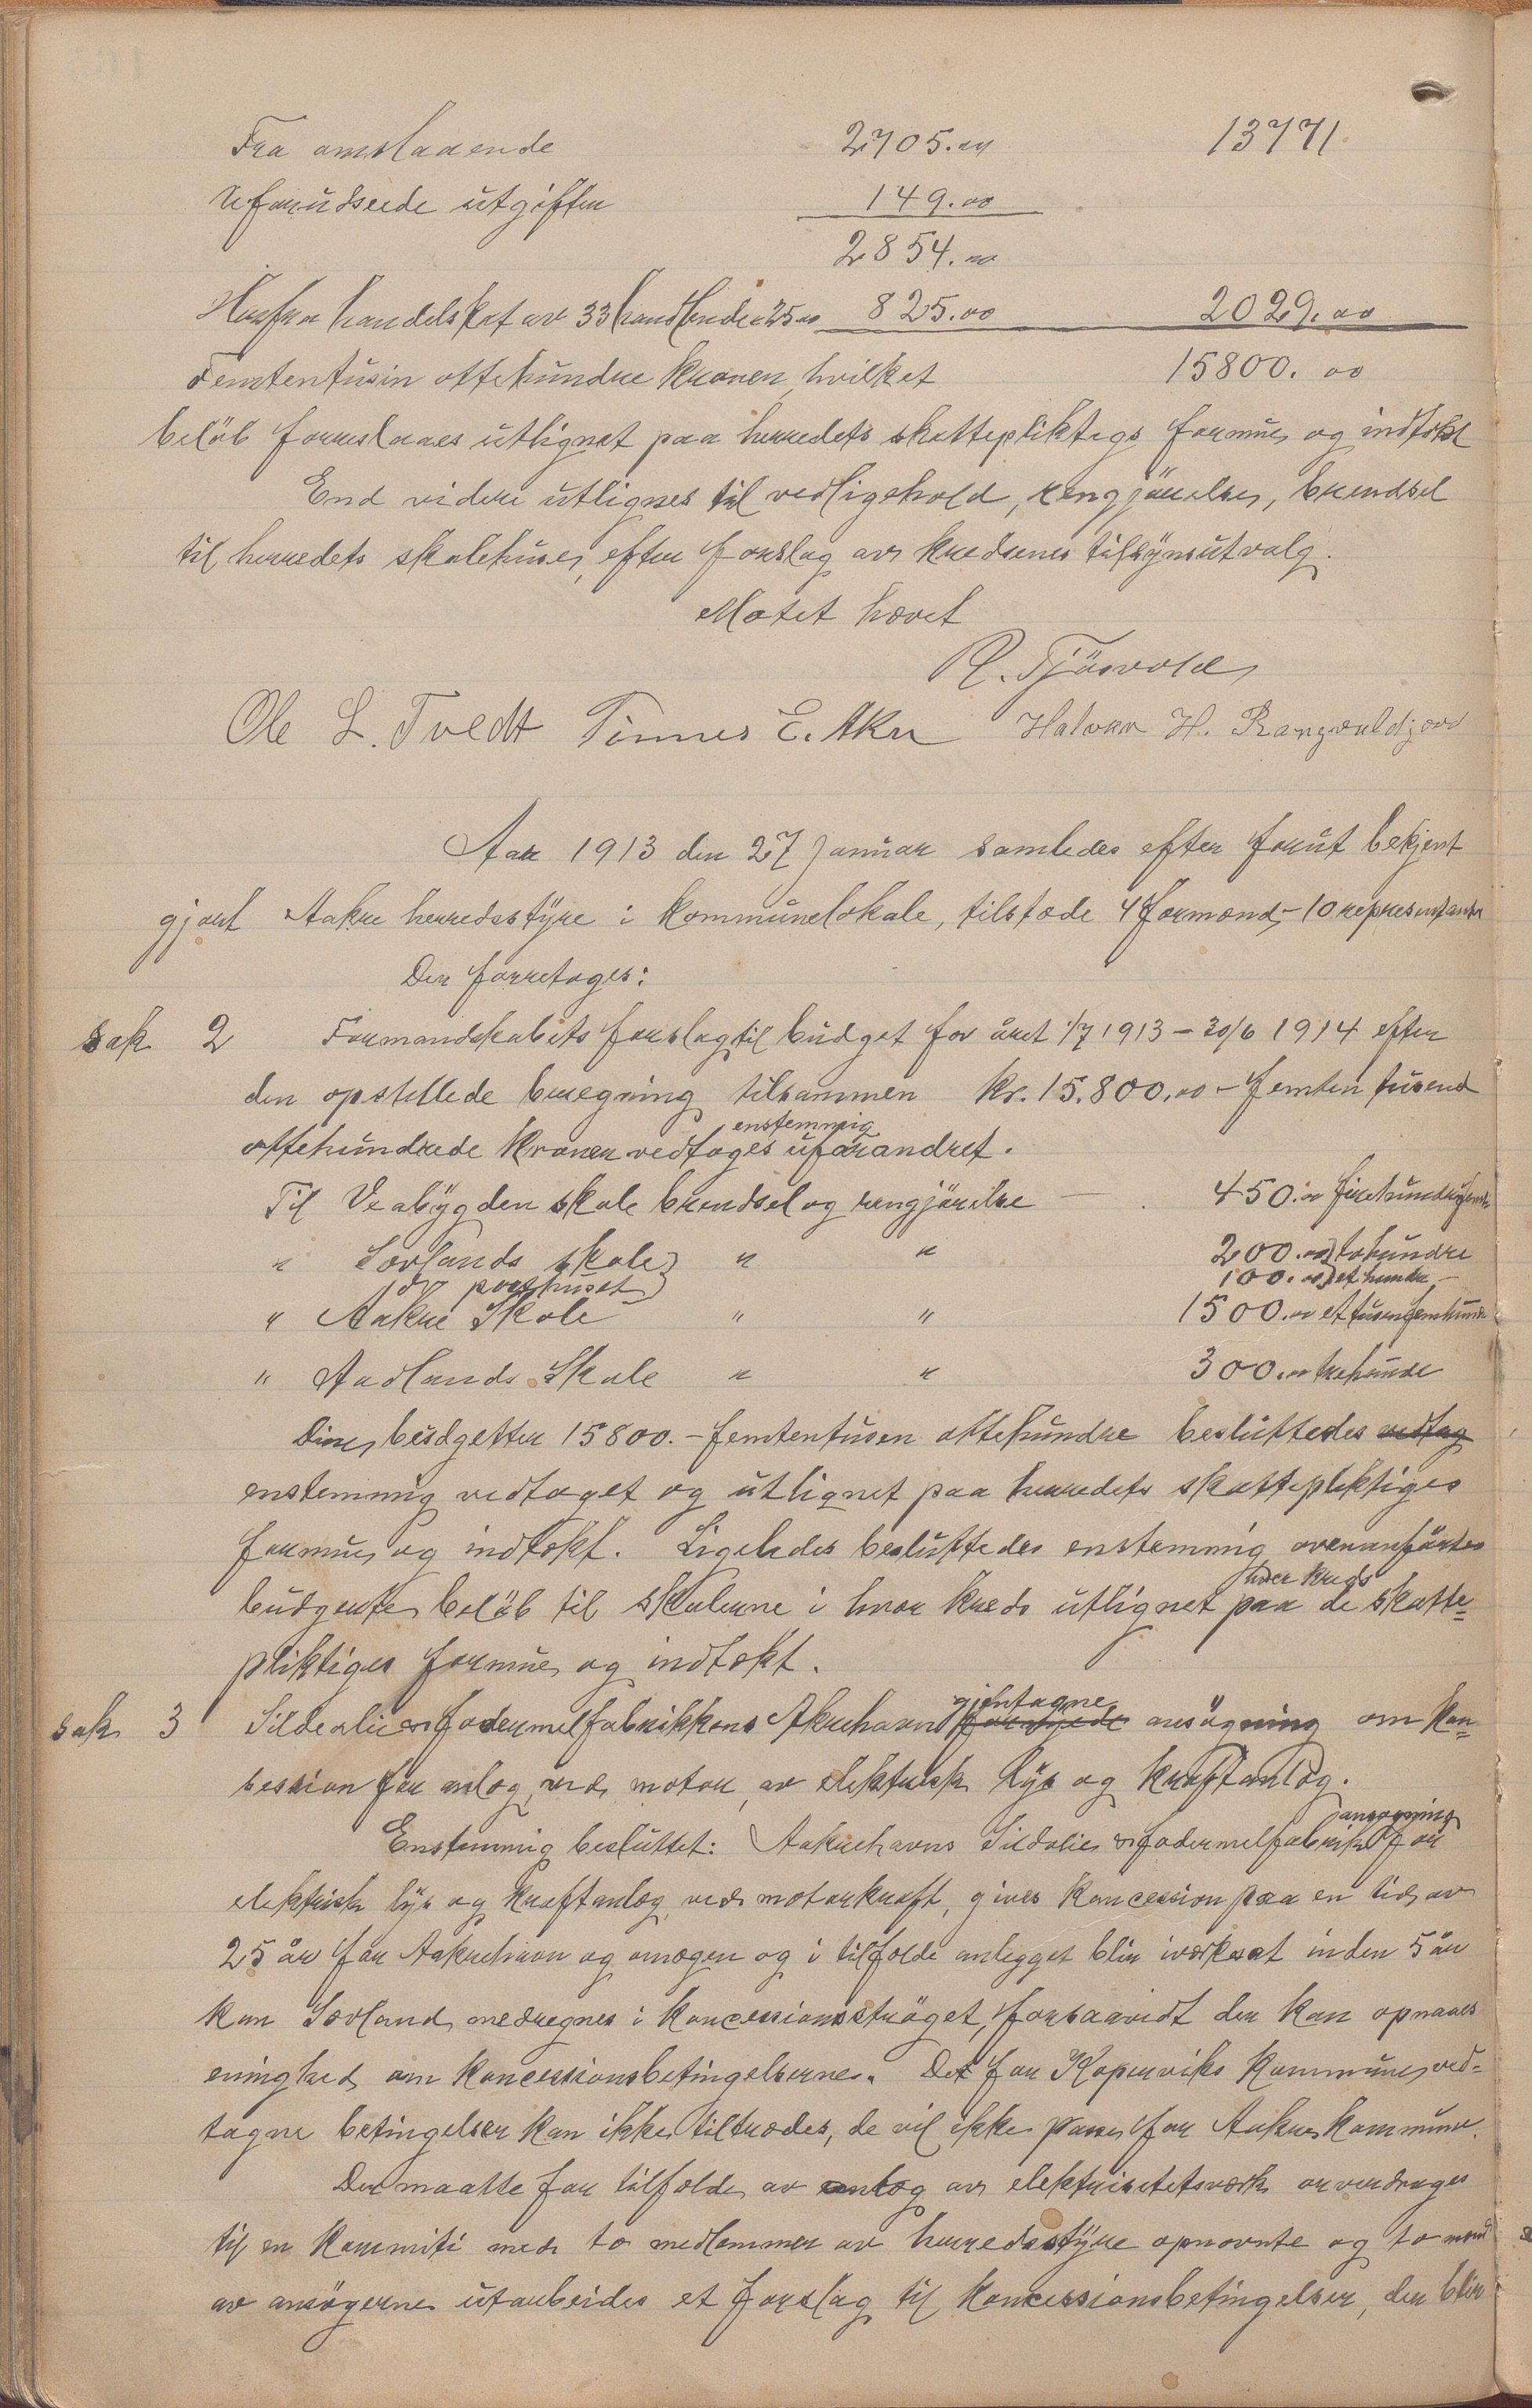 Fra omstaaende 2705.00 13771.
Uforudseede utgifter 149.00
2854.00
Herfra handelskat av 33 handlende a 25 00 825.00 2029.00
Femtentusin ottehundre kroner, hvilket 15800.00
beløb foreslaaes utlignet paa herredets skattepliktigs formue og indtekt
End videre utlignes til vedligehold, rengjörelse, brendsel
til herredets skolehuse, efter forslag av kredsenes tilsynsutvalg.
Møtet hævet
R. Tjösvold
Ole L. Tvedt Tönnes E. Akre Halvar H. Rangvaldsjord
Aar 1913 den 27 Januar samledes efter forut bekjent
gjort Aakre herredsstyre i kommunelokale, tilstede 4 formænd - 10 representanter
Der foretoges:
Sak 2 Formandskabets forslag til budget for året 1/7 1913 - 30/6 1914 efter
den opstillede beregning tilsammen kr. 15.800.00 - femten tusend
enstemmig
ottehundrede kroner vedtoges uforandret.
Til Veabygden skole brendsel og rengjörelse — 450.00 firehundrefemti
" Sørlands skole " " 200.00 tohundre
do posthuset 100.00 et hundre -
" Aakre Skole " " 1500.00 et tusenfemhundre
" Aadlands Skole " " 300.00 trehundre
Disse budgetter 15800. - femtentusen ottehundre besluttedes vedtag
enstemmig vedtaget og utlignet paa herredets skattepliktiges
formue og indtekt. Ligeledes besluttedes enstemmig ovenanførte
hver kreds
budgerte beløb til skolerne i hver kreds utlignet paa de skatte=
pliktiges formue og indtekt.
Sak 3 Sildeolie og fodermelfabrikkens Akrehavn
gjentagne
ansøgning om kon=
cession for anlæg, ved motor, av elektrisk lys og kraftanlæg.
ansøgning
Enstemmig besluttet: Aakrehavns Sildolie og fodermelfabrik for
elektrisk lys og kraftanlæg, ved motorkraft, gives koncession paa en tid av
25 år for Aakrehavn og omegn og i tilfelde anlegget blir iverksat inden 5 år
kan Sørland medregnes i koncessionsstrøget, forsaavidt der kan opnaaes
enighed om koncessionsbetingelserne. De for Koperviks kommune ved=
tagne betingelser kan ikke tiltrædes, de vil ikke passe for Aakre kommune.
Der maatte for tilfelde av anlæg av elektricitetsverk overdrages
til en kommite med to medlemmer av herredsstyre opnevnte og to mend
av ansøgerne utarbeides et forslag til koncessionsbetingelser, der blir